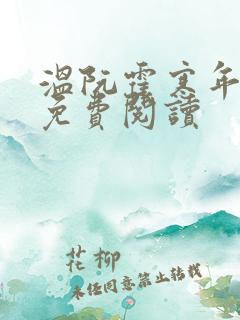 溫阮霍寒年
免費閱讀
花柳
未经同意禁止转载